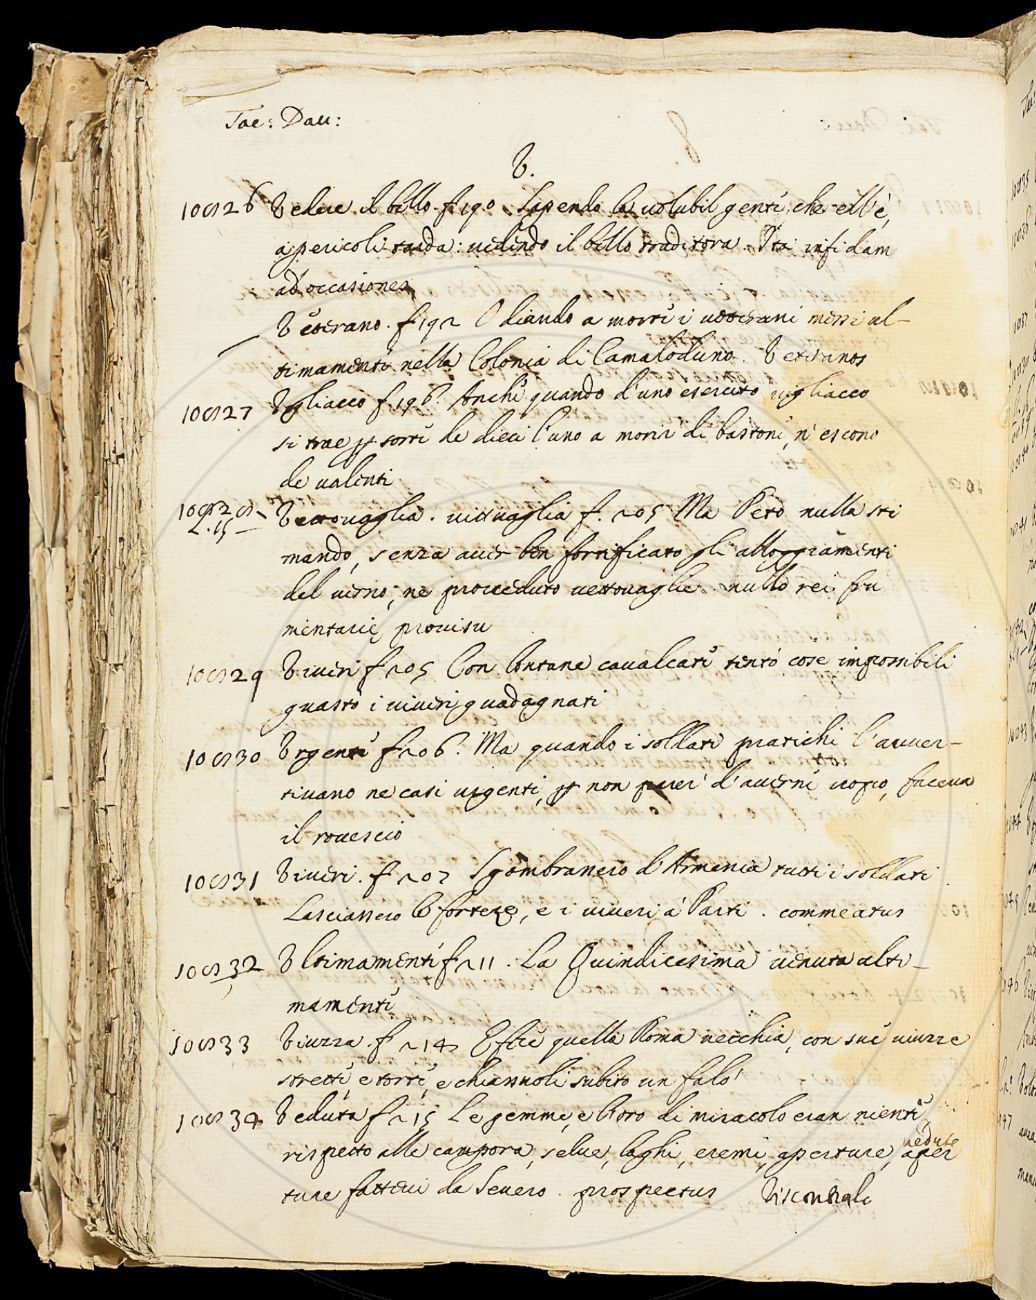 Tac: Dau:
V.
Vedere il bello. f 190. Sapendo le volubil genti, che ell'è,
a pericoli tarda: vedendo il bello traditora. Ita infidam
ad occasiones
Veterano. f 192 Odiando a morti i veterani messi ul-
timamenti nella Colonia di Camaloduno. Veteranos
Vigliacco f 196. Anchi quando d'uno esercito vigliacco
si trae sorti de dieci l'uno a morir di bastoni, n'escono
de valenti
Vettovaglia. vittuaglia f. 205 Ma Peto nulla sti
mando, senza aver ben fortificato gli alloggiamenti
del verno, ne proveduto vettovaglie. nullo rei fru
mentarie provisu
Viveri f 205 Con lontane cavalcati tentò cose impossibili
guastò i viveri guadagnati
10829
Urgenti f 206. Ma quando i soldati pratichi l'avver-
tivano ne casi urgenti, non parer d'averni uopo, faceva
il rovescio
10830
Viveri. f 207 Sgombrancio d'Armenia tutti i soldati
Lasciancio le forteze, e i viveri a' Parti. commeatus
10831
Ultimamenti f 211. La Quindicesima venuta ulti-
mamenti
10832
Viuzza. f 214 quella Roma vecchia, con sue viuzze
stretti e torti, e chiassuoli subito un falò
10833
Veduta f 215 Le gemme, e l'oro di miracolo eran nienti
rispetto alle campora, selve, laghi, eremi, aperture, vedute
ture fattevi da Severo. prospectus
10834